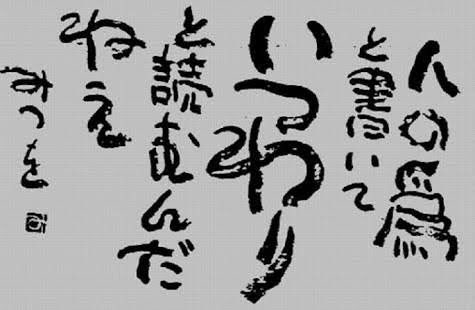 人の爲
と書いて
いつわり
と読むんだ
ねえ
みつを